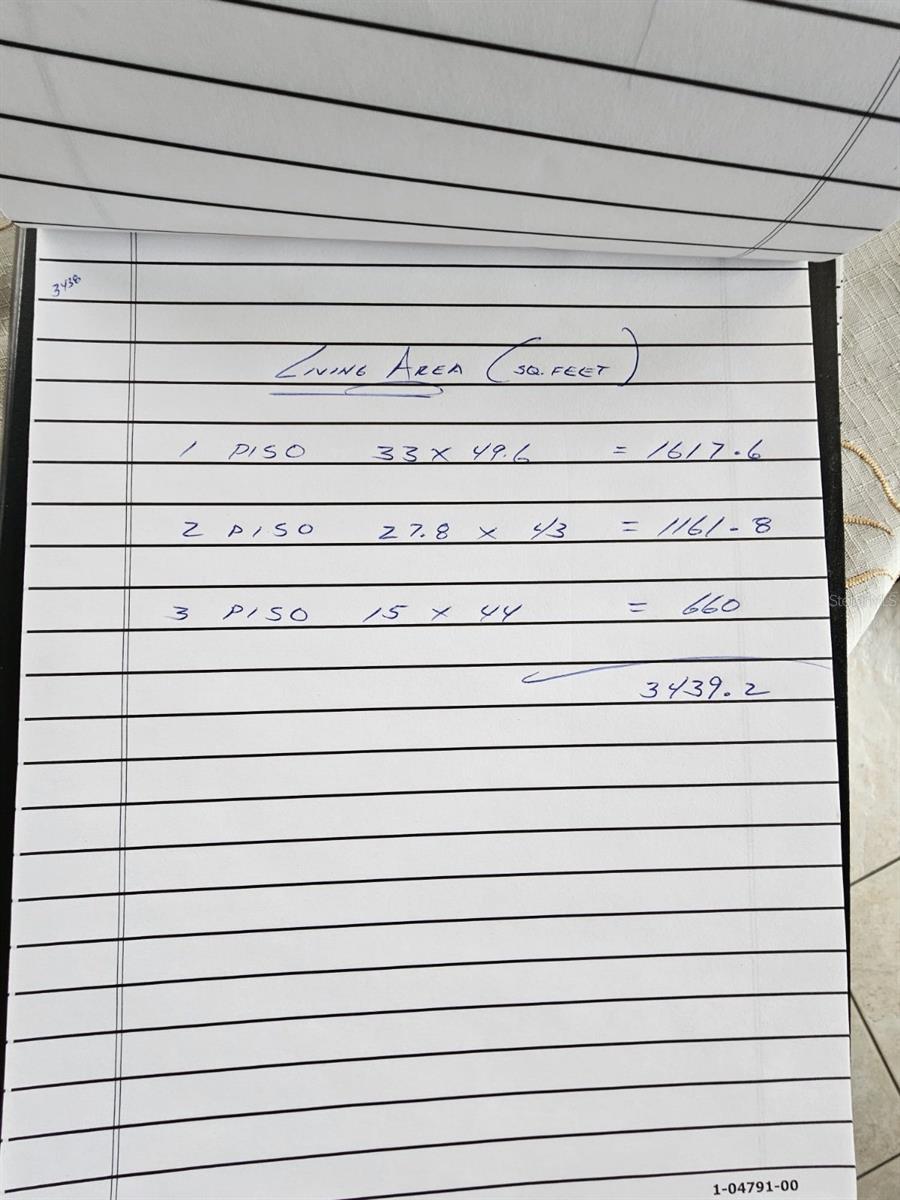 3438
LIVING AREA (SQ. FEET)
1 PISO 33 x 49.6 = 1617.6
2 PISO 27.8 x 43 = 1161-8
3 PISO 15 x 44 = 660
3439.2
1-04791-00